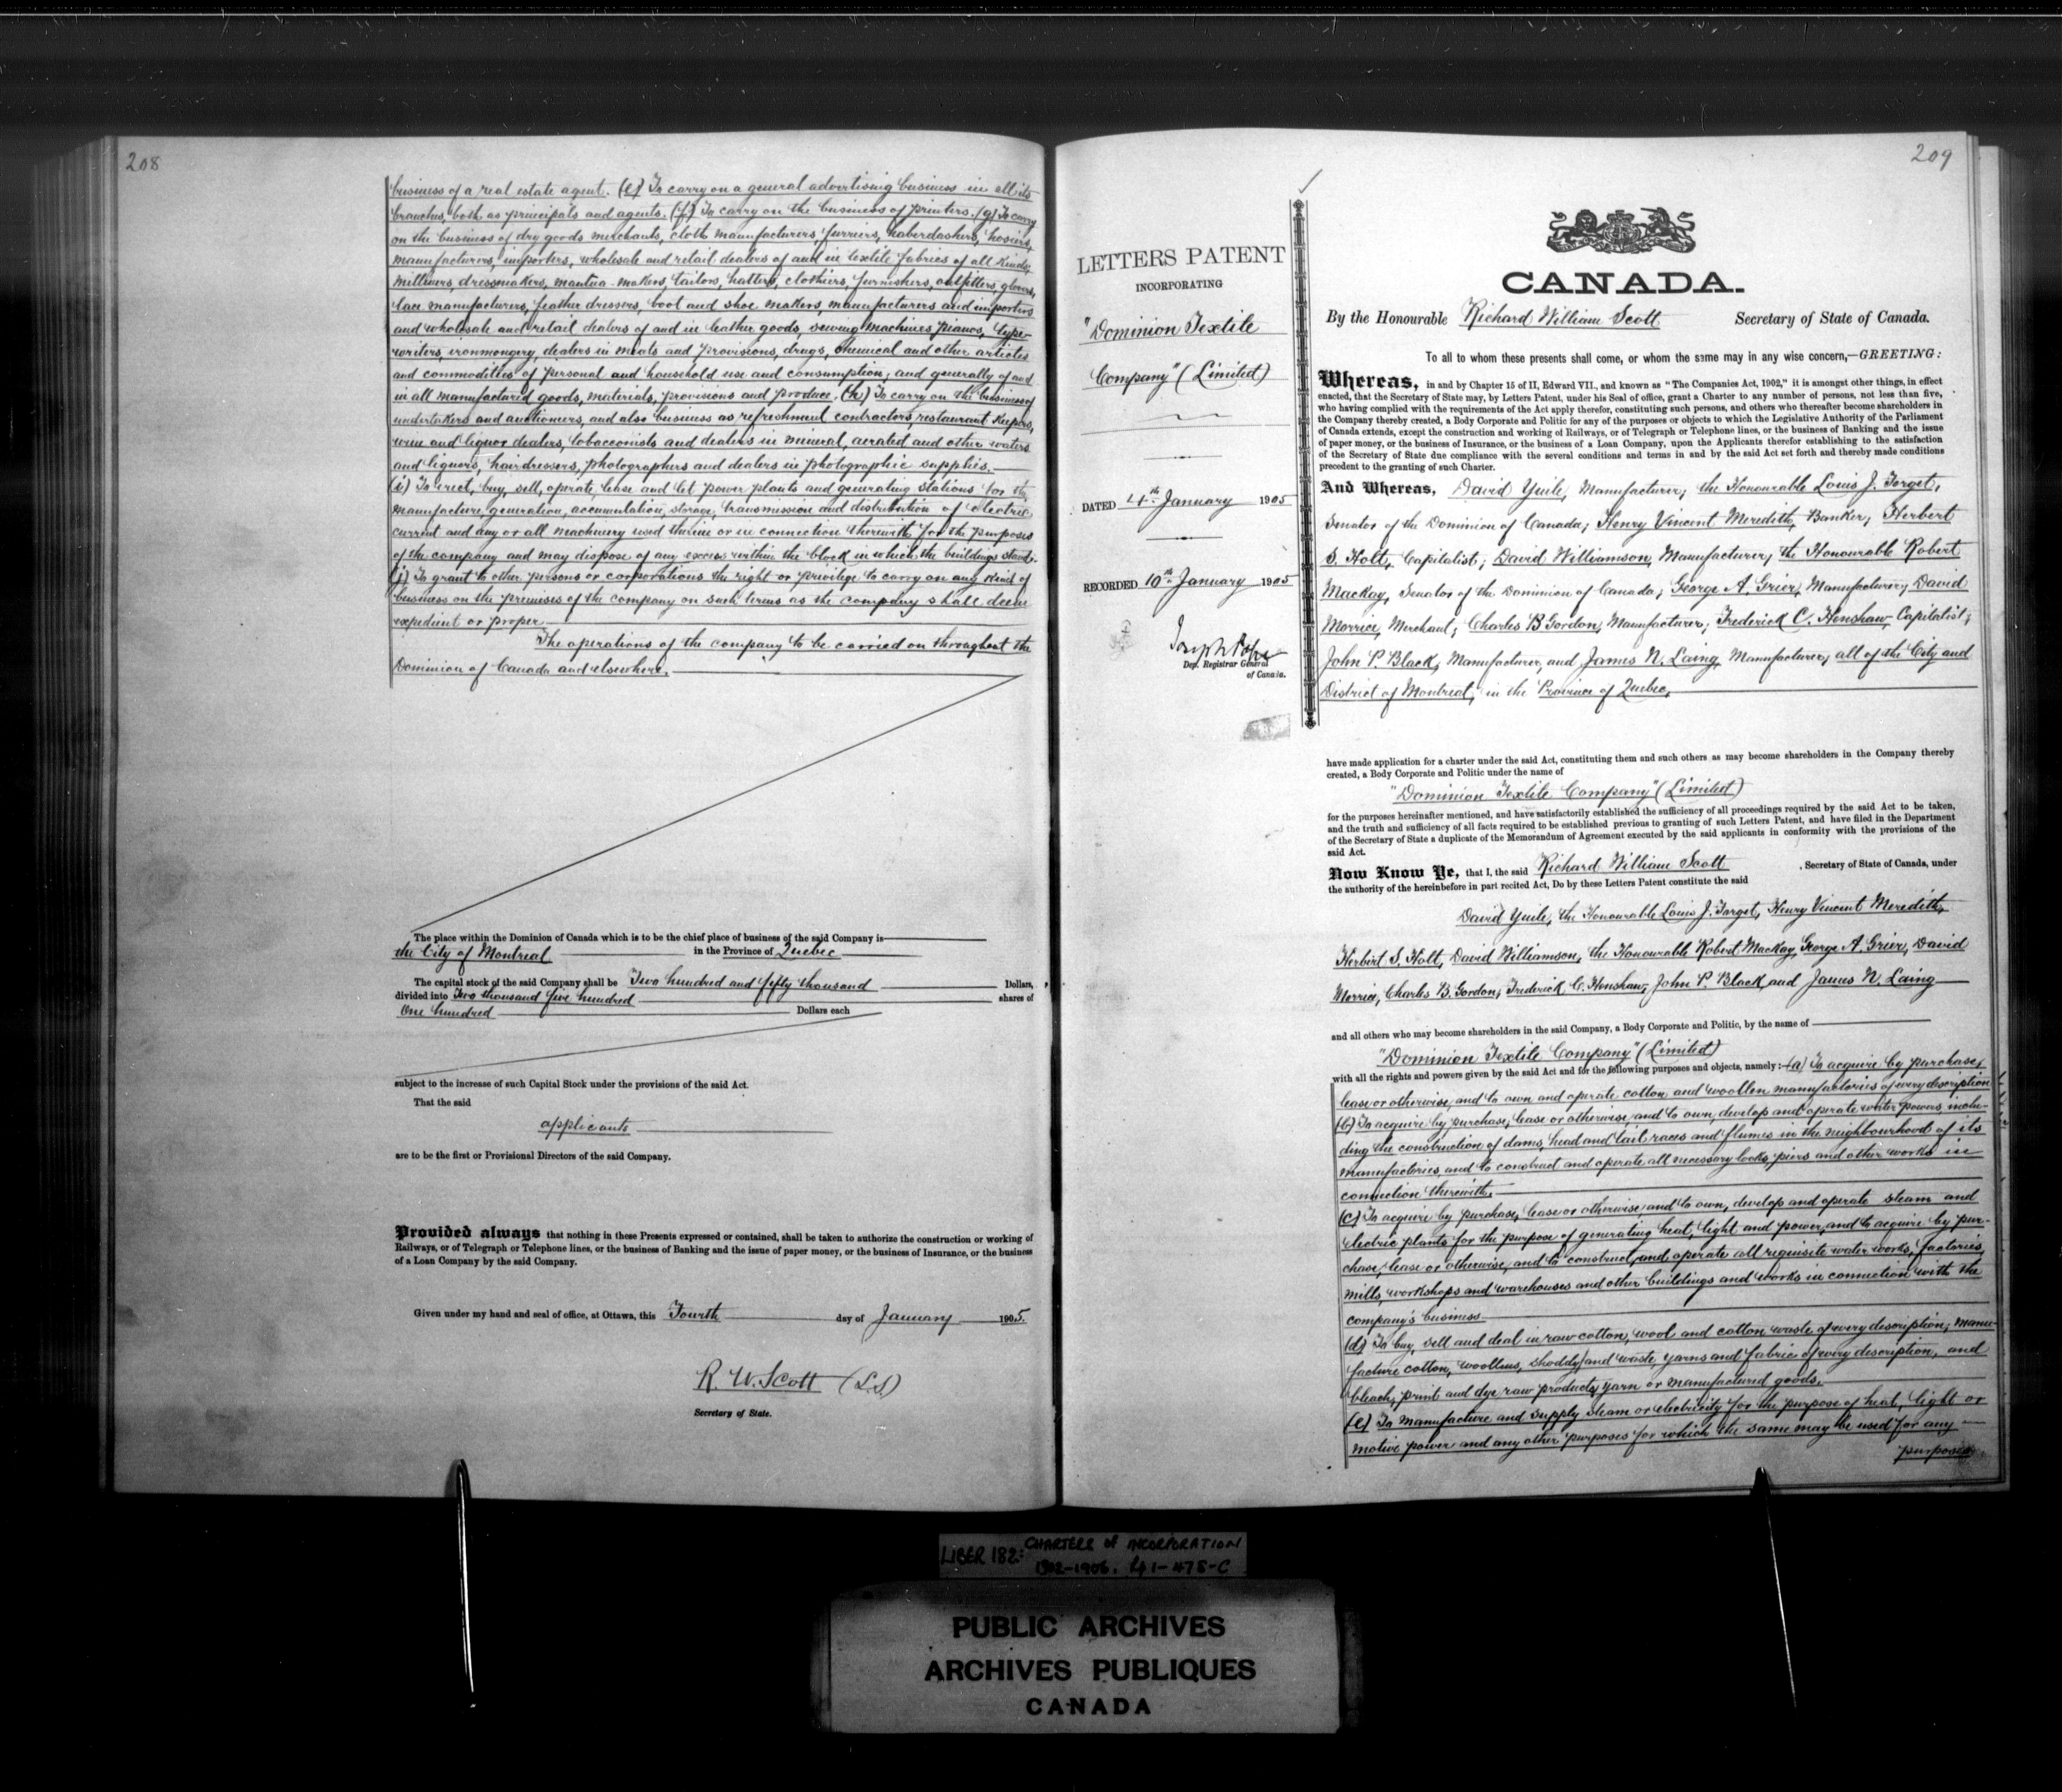 208
business of a real estate agent. (e) To carry on a general advertising business in all its
branches, both as principals and agents. (f) To carry on the business of printers. (g) To carry
on the business of dry goods merchants, cloth manufacturers, furriers, haberdashers, hosiers,
manufacturers, importers, wholesale and retail dealers of and in textile fabrics of all kinds,
milliners, dressmakers, mantua-makers, tailors, hatters, clothiers, furnishers, outfitters, glovers,
lace manufacturers, feather dressers, boot and shoe makers, manufacturers and importers
and wholesale and retail dealers of and in leather goods, sewing machines, pianos, type-
writers, ironmongery, dealers in meats and provisions, drugs, chemical and other articles
and commodities of personal and household use and consumption; and generally of and
in all manufactured goods, materials, provisions and produce. (h) To carry on the business of
undertakers and auctioneers, and also business as refreshment contractors, restaurant keepers,
wine and liquor dealers, tobacconists and dealers in mineral, aerated and other waters
and liquors, hairdressers, photographers and dealers in photographic supplies.
(i) To erect, buy, sell, operate, lease and let power plants and generating stations for the
manufacture, generation, accumulation, storage, transmission and distribution of electric
current and any or all machinery used therein or in connection therewith for the purposes
of the company and may dispose of any excess within the block in which the building stands.
(j) To grant to other persons or corporations the right or privilege to carry on any kind of
business on the premises of the company on such terms as the company shall deem
expedient or proper.
The operations of the company to be carried on throughout the
Dominion of Canada and elsewhere.
The place within the Dominion of Canada which is to be the chief place of business of the said Company is
the City of Montreal in the Province of Quebec
The capital stock of the said Company shall be Two hundred and fifty thousand Dollars,
divided into Two thousand five hundred shares of
One hundred Dollars each
subject to the increase of such Capital Stock under the provisions of the said Act.
That the said
applicants
are to be the first or Provisional Directors of the said Company.
Provided always that nothing in these Presents expressed or contained, shall be taken to authorize the construction or working of
Railways, or of Telegraph or Telephone lines, or the business of Banking and the issue of paper money, or the business of Insurance, or the business
of a Loan Company by the said Company.
Given under my hand and seal of office, at Ottawa, this Fourth day of January 1905.
R. W. Scott (L.S)
Secretary of State.
209
LETTERS PATENT
INCORPORATING
"Dominion Textile
Company" (Limited)
DATED 4th January 1905
RECORDED 10th January 1905
Joseph Pope
Dep. Registrar General
of Canada.
CANADA.
By the Honourable Richard William Scott Secretary of State of Canada.
To all to whom these presents shall come, or whom the same may in any wise concern,—GREETING:
Whereas, in and by Chapter 15 of II, Edward VII., and known as "The Companies Act, 1902," it is amongst other things, in effect
enacted, that the Secretary of State may, by Letters Patent, under his Seal of office, grant a Charter to any number of persons, not less than five,
who having complied with the requirements of the Act apply therefor, constituting such persons, and others who thereafter become shareholders in
the Company thereby created, a Body Corporate and Politic for any of the purposes or objects to which the Legislative Authority of the Parliament
of Canada extends, except the construction and working of Railways, or of Telegraph or Telephone lines, or the business of Banking and the issue
of paper money, or the business of Insurance, or the business of a Loan Company, upon the Applicants therefor establishing to the satisfaction
of the Secretary of State due compliance with the several conditions and terms in and by the said Act set forth and thereby made conditions
precedent to the granting of such Charter.
And Whereas, David Yuile, Manufacturer; the Honourable Louis J. Forget,
Senator of the Dominion of Canada; Henry Vincent Meredith, Banker; Herbert
S. Holt, Capitalist; David Williamson, Manufacturer; the Honourable Robert
MacKay, Senator of the Dominion of Canada; George A. Grier, Manufacturer; David
Morrice, Merchant; Charles B Gordon, Manufacturer; Frederick C. Henshaw, Capitalist;
John P. Black, Manufacturer, and James N. Laing, Manufacturer, all of the City and
District of Montreal, in the Province of Quebec,
have made application for a charter under the said Act, constituting them and such others as may become shareholders in the Company thereby
created, a Body Corporate and Politic under the name of
"Dominion Textile Company" (Limited)
for the purposes hereinafter mentioned, and have satisfactorily established the sufficiency of all proceedings required by the said Act to be taken,
and the truth and sufficiency of all facts required to be established previous to granting of such Letters Patent, and have filed in the Department
of the Secretary of State a duplicate of the Memorandum of Agreement executed by the said applicants in conformity with the provisions of the
said Act.
Now Know Ye, that I, the said Richard William Scott, Secretary of State of Canada, under
the authority of the hereinbefore in part recited Act, Do by these Letters Patent constitute the said
David Yuile, the Honourable Louis J. Forget, Henry Vincent Meredith,
Herbert S. Holt, David Williamson, the Honourable Robert MacKay, George A. Grier, David
Morrice, Charles B. Gordon, Frederick C. Henshaw, John P. Black, and James N. Laing
and all others who may become shareholders in the said Company, a Body Corporate and Politic, by the name of
"Dominion Textile Company" (Limited)
with all the rights and powers given by the said Act and for the following purposes and objects, namely:—(a) To acquire by purchase,
lease or otherwise, and to own and operate cotton and woollen manufactories of every description
(b) To acquire by purchase, lease or otherwise, and to own, develop and operate water powers, inclu-
ding the construction of dams, head and tail races and flumes in the neighbourhood of its
manufactories, and to construct and operate all necessary locks, piers and other works in
connection therewith.
(c) To acquire by purchase, lease or otherwise, and to own, develop and operate steam and
electric plants for the purpose of generating heat, light and power, and to acquire by pur-
chase, lease or otherwise, and to construct, and operate all requisite water works, factories,
mills, workshops and warehouses and other buildings and works in connection with the
company's business.
(d) To buy, sell and deal in raw cotton, wool and cotton waste of every description; manu-
facture cotton, woollens, shoddy, and waste, yarns and fabric of every description, and
bleach, print and dye raw products, yarn or manufactured goods.
(e) To manufacture and supply steam or electricity for the purpose of heat, light or
motive power and any other purposes for which the same may be used for any
purposes
LIBER 182: CHARTERS OF INCORPORATION
1902-1906. 41-478-C
PUBLIC ARCHIVES
ARCHIVES PUBLIQUES
CANADA